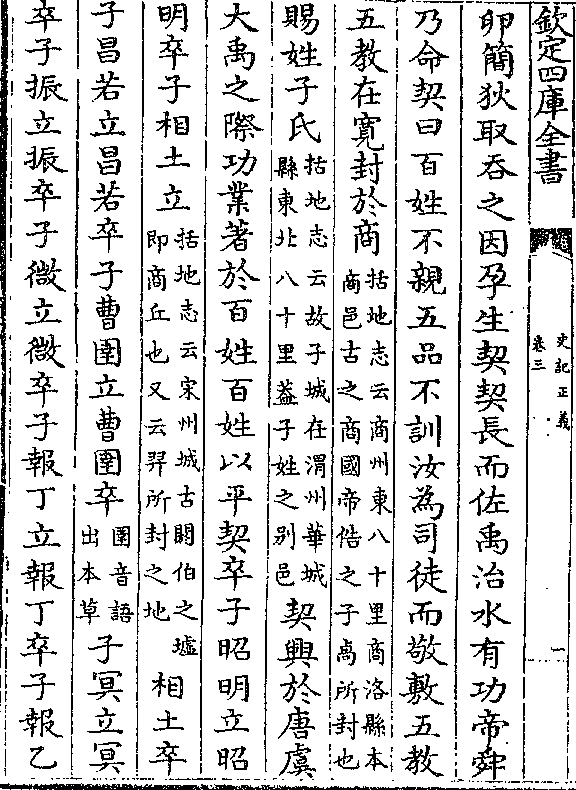 欽定四庫全書
史記正義
卷三
一
卵簡狄取吞之因孕生契契長而佐禹治水有功帝舜
乃命契曰百姓不親五品不訓汝為司徒而敬敷五教
五教在寛封於商括地志云商州東八十里商洛縣本商邑古之商國帝俈之子卨所封也
賜姓子氏括地志云故子城在渭州華城縣東北八十里葢子姓之别邑契興於唐虞
大禹之際功業著於百姓百姓以平契卒子昭明立昭
明卒子相土立括地志云宋州城古閼伯之墟即商丘也又云羿所封之地相土卒
子昌若立昌若卒子曹圉立曹圉卒圉音語出本草子冥立冥
卒子振立振卒子微立微卒子報丁立報丁卒子報乙